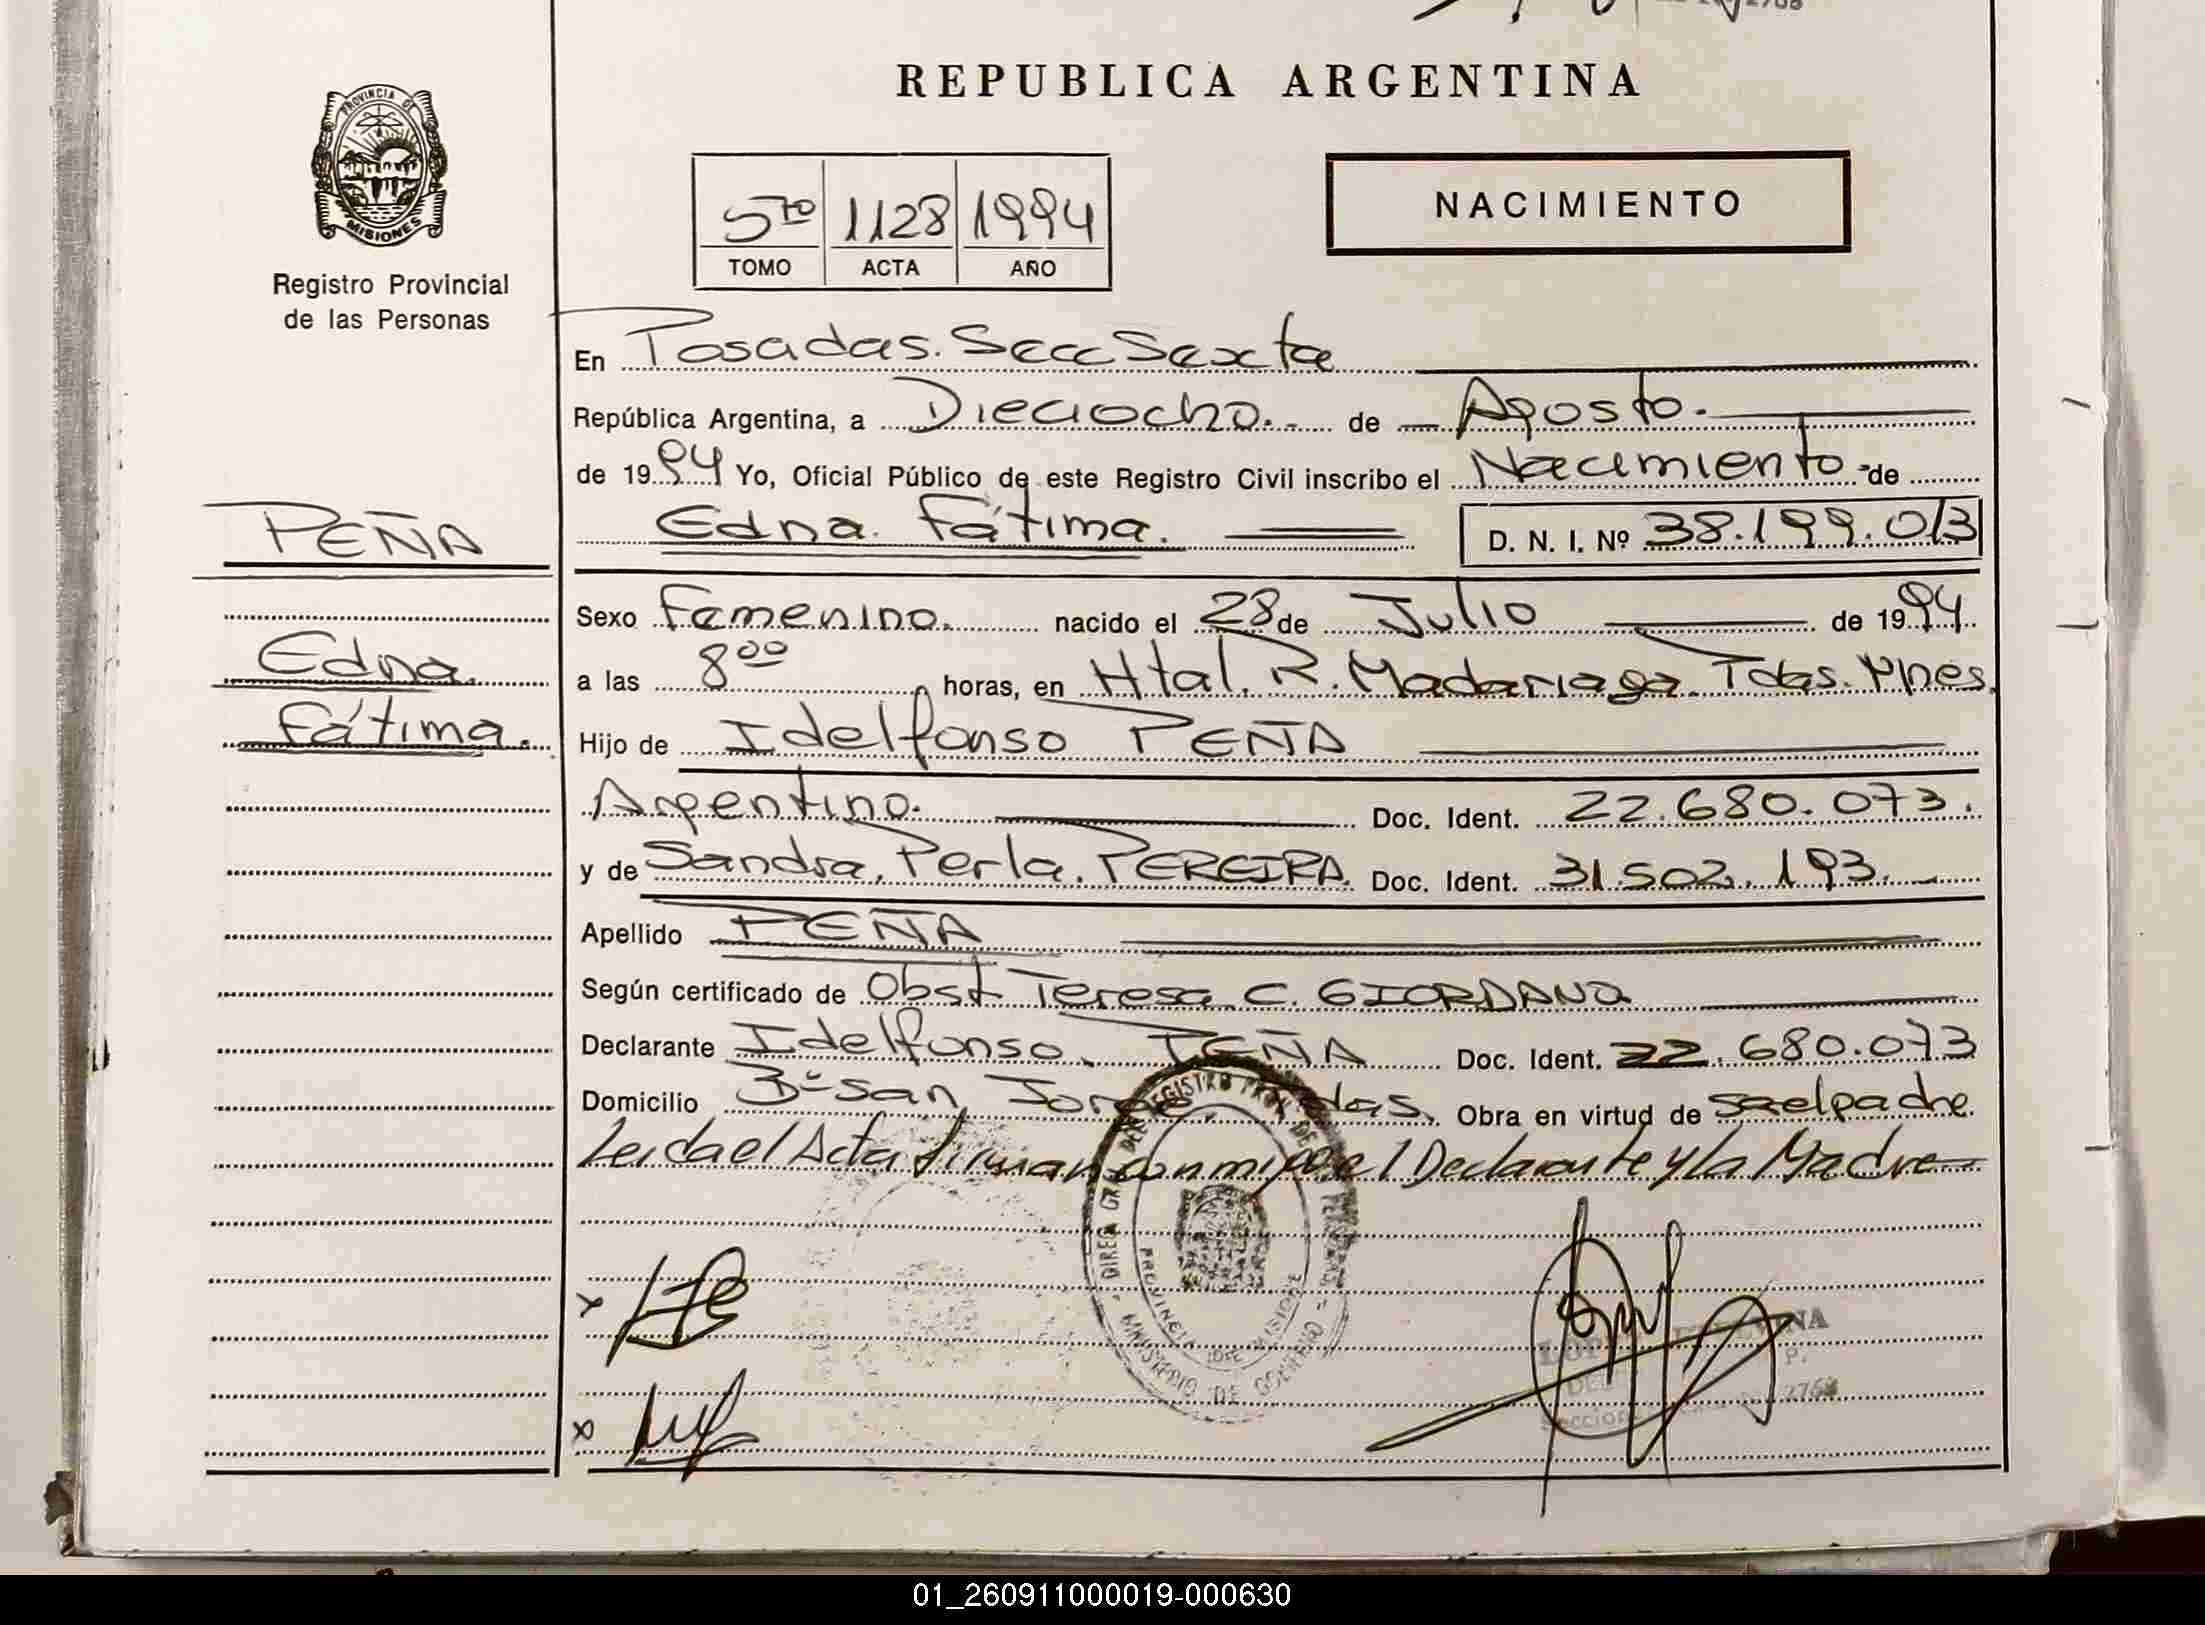 REPUBLICA ARGENTINA
PROVINCIA DE
MISIONES
Registro Provincial
de las Personas
5to 1128 1994
TOMO ACTA AÑO
NACIMIENTO
En Posadas. Secc Sexta
República Argentina, a Dieciocho. de Agosto.
de 1994 Yo, Oficial Público de este Registro Civil inscribo el Nacimiento de
Edna. Fátima. D. N. I. Nº 38.199.013
PEÑA
Edna.
Fátima.
Sexo Femenino. nacido el 28 de Julio de 1994.
a las 8⁰⁰ horas, en Htal. R. Madariaga. Pdas. Mnes.
Hijo de Idelfonso PEÑA
Argentino. Doc. Ident. 22.680.073.
y de Sandra. Perla. PEREIRA. Doc. Ident. 31.502.193.
Apellido PEÑA
Según certificado de Obst Teresa C. GIORDANO
Declarante Idelfonso. PEÑA Doc. Ident. 22.680.073
Domicilio Bº San Jorge Pdas. Obra en virtud de ser el padre
Leida el Acta firman conmigo el Declarante y la Madre
DIREC. GRAL. DEL REGISTRO PROV. DE LAS PERSONAS
PROVINCIA DE MISIONES
MINISTERIO DE GOBIERNO
x
x
2768
01_260911000019-000630